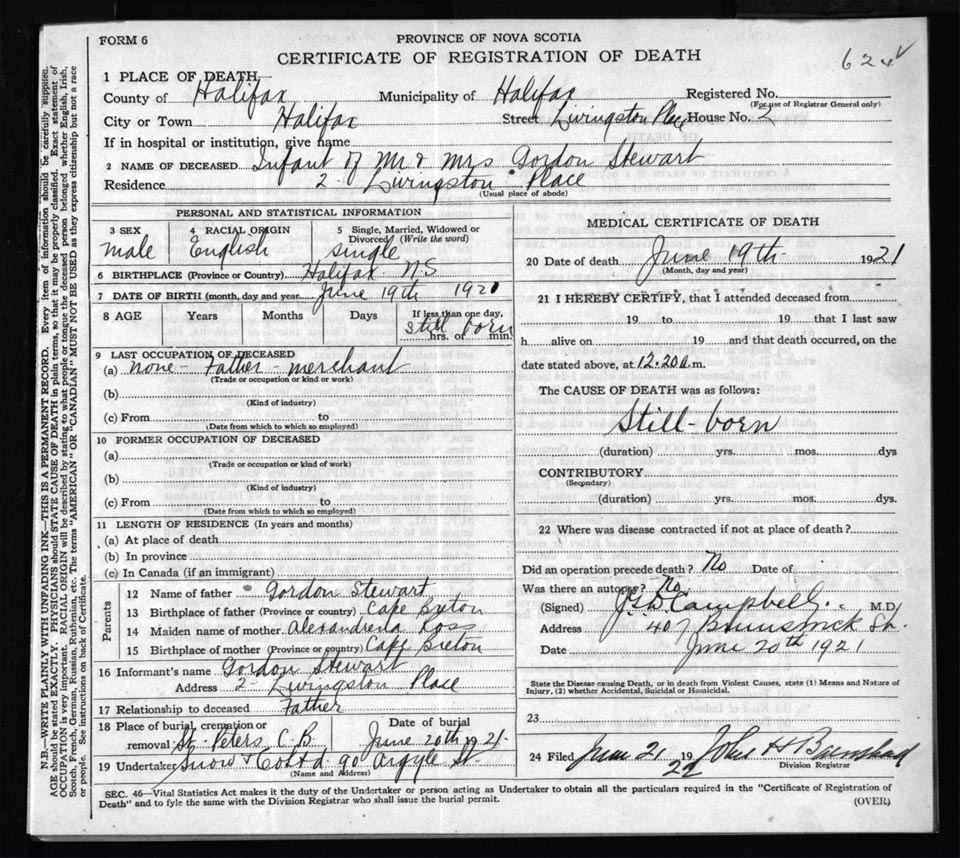 FORM 6
PROVINCE OF NOVA SCOTIA
CERTIFICATE OF REGISTRATION OF DEATH
624
1 PLACE OF DEATH
County of Halifax Municipality of Halifax Registered No.
(For use of Registrar General only)
City or Town Halifax Street Livingston Place House No. 2
If in hospital or institution, give name
2 NAME OF DECEASED Infant of Mr & Mrs Gordon Stewart
Residence 2 - Livingston Place
(Usual place of abode)
PERSONAL AND STATISTICAL INFORMATION
3 SEX 4 RACIAL ORIGIN 5 Single, Married, Widowed or Divorced (Write the word)
male English single
6 BIRTHPLACE (Province or Country) Halifax N.S
7 DATE OF BIRTH (month, day and year June 19th 1921
8 AGE Years Months Days If less than one day,
Still born
hrs. or min.
9 LAST OCCUPATION OF DECEASED
(a) none - Father - merchant
(Trade or occupation or kind of work)
(b)
(Kind of industry)
(c) From to
(Date from which to which so employed)
10 FORMER OCCUPATION OF DECEASED
(a)
(Trade or occupation or kind of work)
(b)
(Kind of industry)
(c) From to
(Date from which to which so employed)
11 LENGTH OF RESIDENCE (In years and months)
(a) At place of death
(b) In province
(c) In Canada (if an immigrant)
Parents
12 Name of father Gordon Stewart
13 Birthplace of father (Province or country) Cape Breton
14 Maiden name of mother Alexandrena Ross
15 Birthplace of mother (Province or country) Cape Breton
16 Informant's name Gordon Stewart
Address 2 - Livingston Place
17 Relationship to deceased Father
18 Place of burial, cremation or removal St. Peters C.B. Date of burial June 20th 1921.
19 Undertaker Snow & Co Ltd 90 Argyle St.
(Name and Address)
MEDICAL CERTIFICATE OF DEATH
20 Date of death June 19th 1921
(Month, day and year)
21 I HEREBY CERTIFY, that I attended deceased from
19 to 19 that I last saw
h alive on 19 and that death occurred, on the
date stated above, at 12.20 a.m.
The CAUSE OF DEATH was as follows:
Still-born
(duration) yrs. mos. dys
CONTRIBUTORY
(Secondary)
(duration) yrs. mos. dys.
22 Where was disease contracted if not at place of death?
Did an operation precede death? No Date of
Was there an autopsy? No.
(Signed) Campbell. M.D.
Address 407 Brunswick St.
Date June 20th 1921
State the Disease causing Death, or in death from Violent Causes, state (1) Means and Nature of
Injury, (2) whether Accidental, Suicidal or Homicidal.
23
24 Filed June 21 19 John H
Division Registrar
SEC. 46—Vital Statistics Act makes it the duty of the Undertaker or person acting as Undertaker to obtain all the particulars required in the "Certificate of Registration of
Death" and to fyle the same with the Division Registrar who shall issue the burial permit.
(OVER)
N.B.—WRITE PLAINLY WITH UNFADING INK—THIS IS A PERMANENT RECORD. Every item of information should be carefully supplied.
AGE should be stated EXACTLY. PHYSICIANS should STATE CAUSE OF DEATH in plain terms, so that it may be properly classified. Exact statement of
OCCUPATION is very important. RACIAL ORIGIN will be described by stating to what people or tongue the deceased person belonged whether English, Irish,
Scotch, French, German, Russian, Ruthenian, etc. The terms "AMERICAN" OR "CANADIAN" MUST NOT BE USED as they express citizenship but not a race
or people. See instructions on back of Certificate.